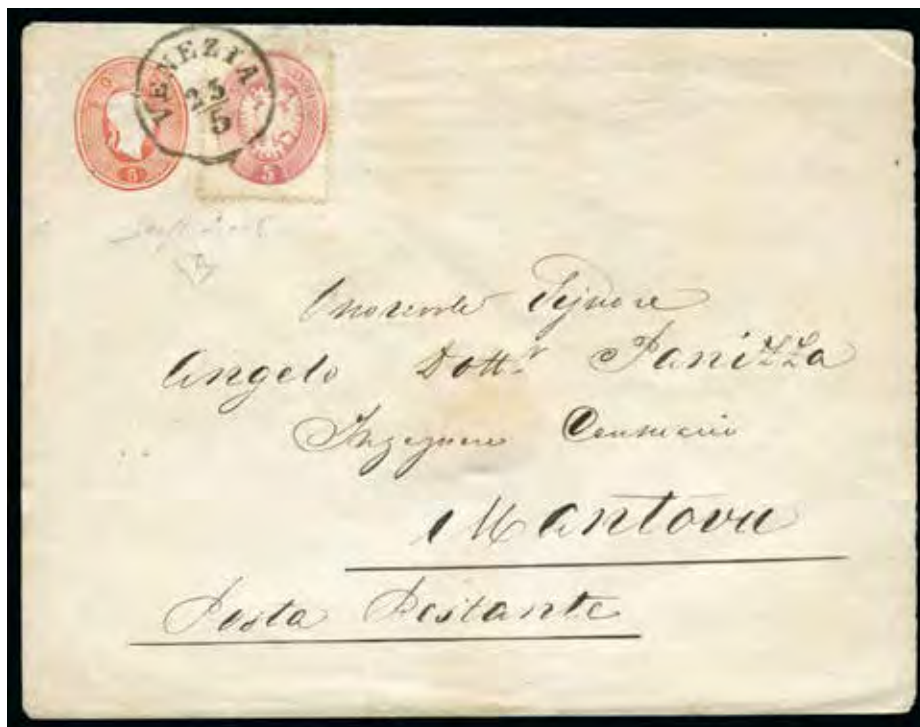 VENEZIA
23
5
5
5
Onorevole Signore
Angelo Dott.r Panizza
Ingegnere
Mantova
Posta Restante